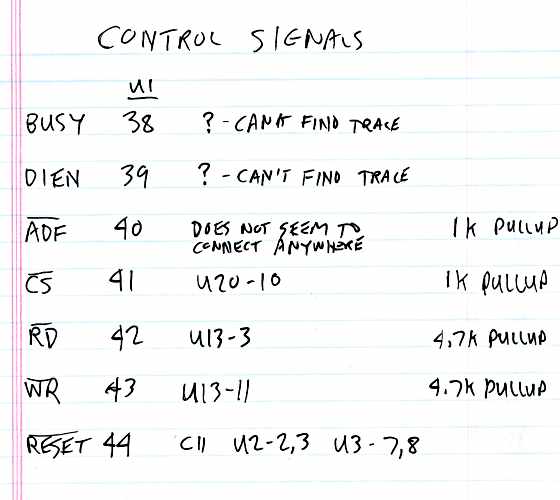 CONTROL SIGNALS
U1
BUSY 38 ? - CAN'T FIND TRACE
DIEN 39 ? - CAN'T FIND TRACE
A̅D̅F̅ 40 DOES NOT SEEM TO CONNECT ANYWHERE 1K PULLUP
C̅S̅ 41 U20-10 1K PULLUP
R̅D̅ 42 U13-3 4.7K PULLUP
W̅R̅ 43 U13-11 4.7K PULLUP
R̅E̅S̅E̅T̅ 44 C11 U2-2,3 U3-7,8